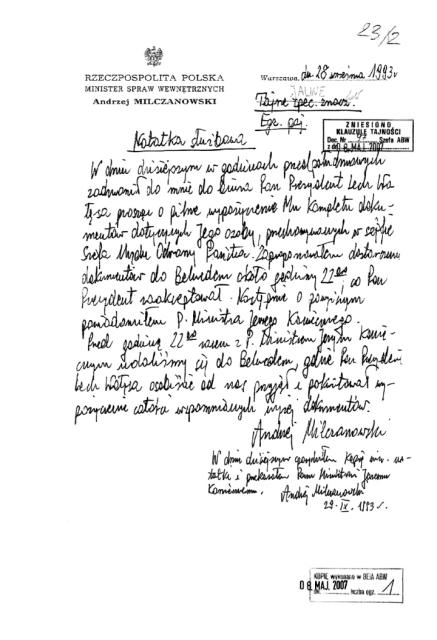 23/2
RZECZPOSPOLITA POLSKA
MINISTER SPRAW WEWNĘTRZNYCH
Andrzej MILCZANOWSKI
Warszawa, dn. 28 września 1993 r.
JAWNE
Tajne spec. znacz.
Egz. poj.
ZNIESIONO
KLAUZULĘ TAJNOŚCI
Dec. Nr Szefa ABW
z dn. 8 MAJ. 2007
Notatka służbowa
W dniu dzisiejszym w godzinach przedpołudniowych
zadzwonił do mnie do biura Pan Prezydent Lech Wa
łęsa prosząc o pilne wypożyczenie Mu kompletu doku-
mentów dotyczących Jego osoby, przechowywanych w sejfie
Szefa Urzędu Ochrony Państwa. Zaproponowałem dostarczenie
dokumentów do Belwederu około godziny 22⁰⁰ co Pan
Prezydent zaakceptował. Następnie o powyższym
powiadomiłem P. Ministra Jerzego Koniecznego.
Przed godziną 22⁰⁰ razem z P. Ministrem Jerzym Konie-
cznym udaliśmy się do Belwederu, gdzie Pan Prezydent
Lech Wałęsa osobiście od nas przyjął i pokwitował wy-
pożyczenie całości wspomnianych wyżej dokumentów.
Andrzej Milczanowski
W dniu dzisiejszym sporządziłem kopię nin. no-
tatki i przekazałem Panu Ministrowi Jerzemu
Koniecznemu. Andrzej Milczanowski
29. IX. 1993 r.
KOPIĘ wykonano w BEiA ABW
08 MAJ. 2007
dn. liczba egz. 1